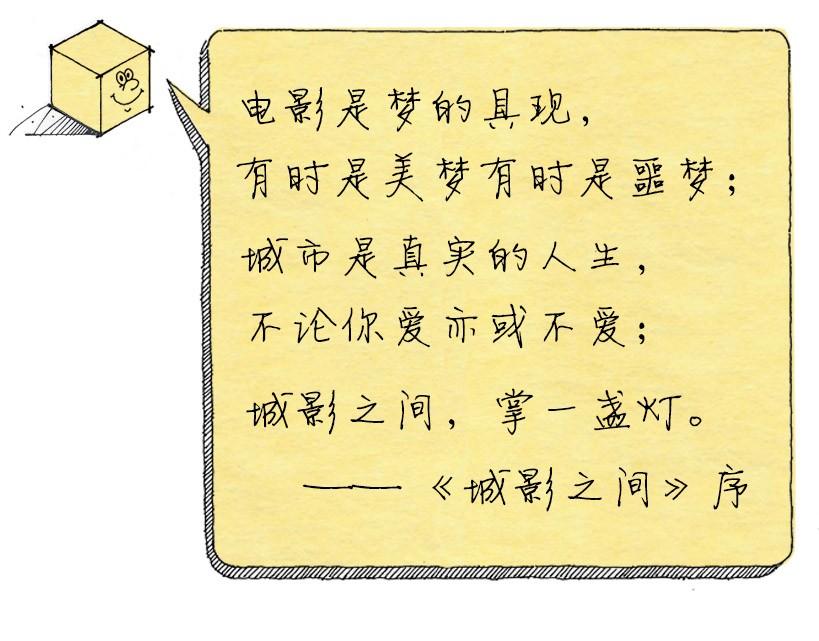 电影是梦的具现，
有时是美梦有时是噩梦；
城市是真实的人生，
不论你爱亦或不爱；
城影之间，掌一盏灯。
——《城影之间》序